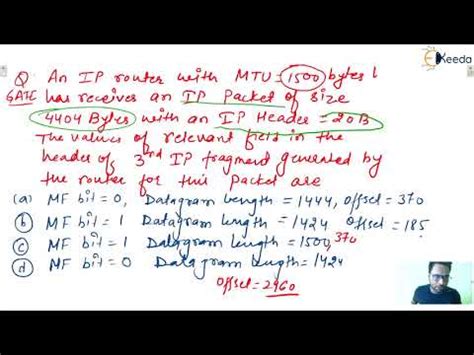 Keeda
Q. An IP router with MTU = 1500 bytes
GATE has receives an IP Packet of size
4404 Bytes with an IP Header = 20B
The values of relevant field in the
header of 3rd IP fragment generated by
the router for this packet are
(a) MF bit = 0, Datagram Length = 1444, offset = 370
(b) MF bit = 1 Datagram length = 1424 offset = 185
(c) MF bit = 1 Datagram length = 1500, 370
(d) MF bit = 0 Datagram length = 1424
offset = 2960